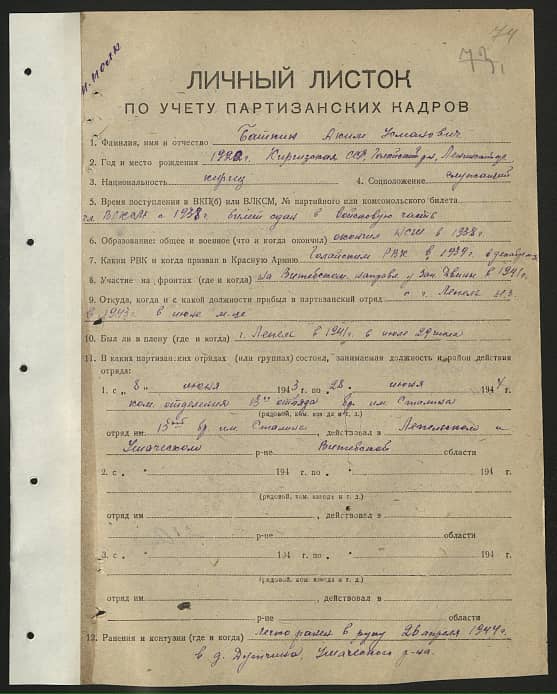 74
73,
ЛИЧНЫЙ ЛИСТОК
ПО УЧЕТУ ПАРТИЗАНСКИХ КАДРОВ
1. Фамилия, имя и отчество Баткин Аким Усманович
2. Год и место рождения 1920г. Киргизская ССР
3. Национальность киргиз 4. Соцположение служащий
5. Время поступления в ВКП(б) или ВЛКСМ, № партийного или комсомольского билета
чл. ВЛКСМ с 1938г билет сдан в войсковую часть
6. Образование: общее и военное (что и когда окончил) окончил НСШ в 1938г
7. Каким РВК и когда призван в Красную Армию РВК в 1939г. в декабре
8. Участие на фронтах (где и когда) на Витебском направ. у Зап. Двины в 1941г.
9. Откуда, когда и с какой должности прибыл в партизанский отряд с г. Лепель
в 1943г. в июне м-це
10. Был ли в плену (где и когда) г. Лепель в 1941г. в июле 29 числа
11. В каких партизанских отрядах (или группах) состоял, занимаемая должность и район действия
отряда:
1. с „ 8 “ июня 194 3 г. по „ 28 “ июня 194 4 г.
ком. отделения 13го отряда бр. им. Сталина
(рядовой, ком. взвода и т. д.)
отряд им. 13ый бр. им. Сталина, действовал в Лепельском и
Ушачском р-не Витебской области
2. с „ “ 194 г. по „ “ 194 г.
(рядовой, ком. взвода и т. д.)
отряд им. , действовал в
р-не области
3. с „ “ 194 г. по „ “ 194 г.
(рядовой, ком. взвода и т. д.)
отряд им. , действовал в
р-не области
12. Ранения и контузии (где и когда) легко ранен в руку 26 апреля 1944г.
в д. Ушачского р-на.